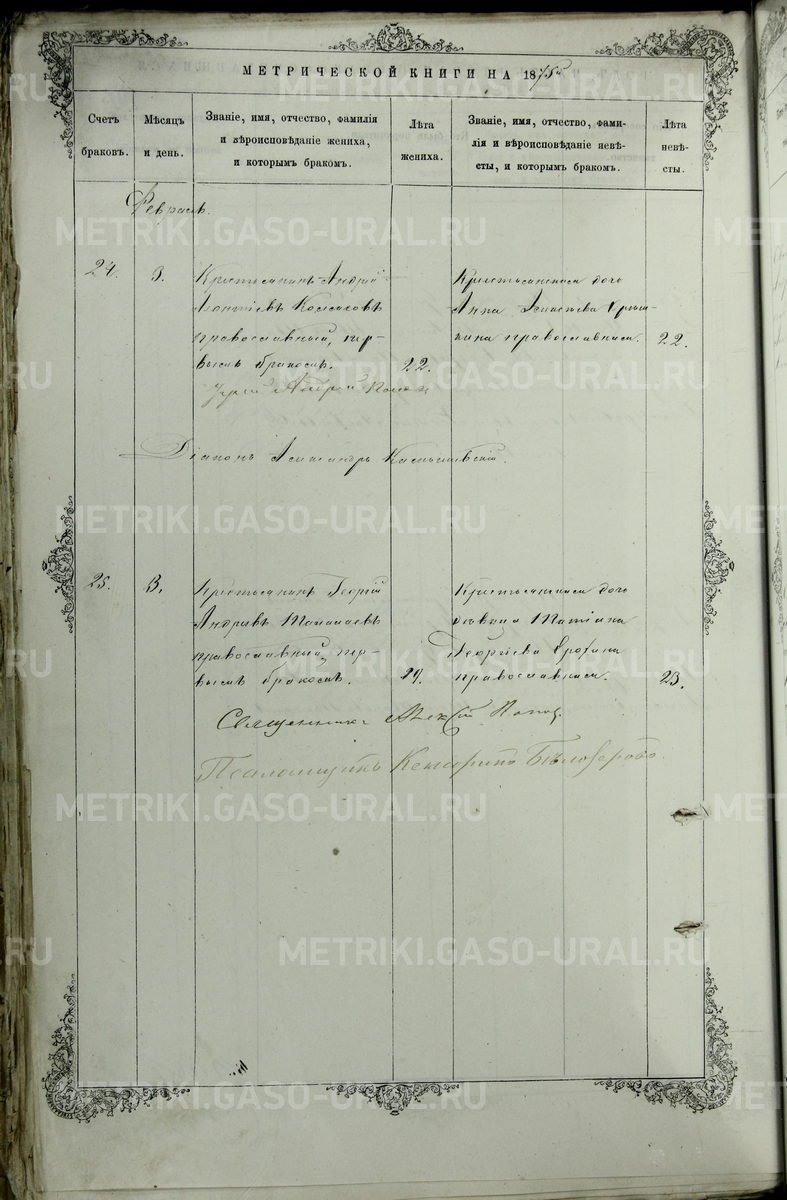 МЕТРИЧЕСКОЙ КНИГИ НА 1875й
Счетъ браковъ.
Мѣсяцъ и день.
Званіе, имя, отчество, фамилія и вѣроисповѣданіе жениха, и которымъ бракомъ.
Лѣта жениха.
Званіе, имя, отчество, фамилія и вѣроисповѣданіе невѣсты, и которымъ бракомъ.
Лѣта невѣсты.
Февраль.
24.
3.
Крестьянинъ Андрей
Леонтіевъ
православный, пер-
вымъ бракомъ.
22.
Крестьянская дочь
Анна
православная.
22.
Андрей
Діаконъ Александръ
25.
3.
Крестьянинъ Георгій
Андреевъ
православный, пер-
вымъ бракомъ.
19.
Крестьянская дочь
дѣвица Татіана
Георгіева Ерофина
православная.
23.
Священникъ Алексій Попов
Псаломщикъ Бѣлозеровъ
METRIKI.GASO-URAL.RU